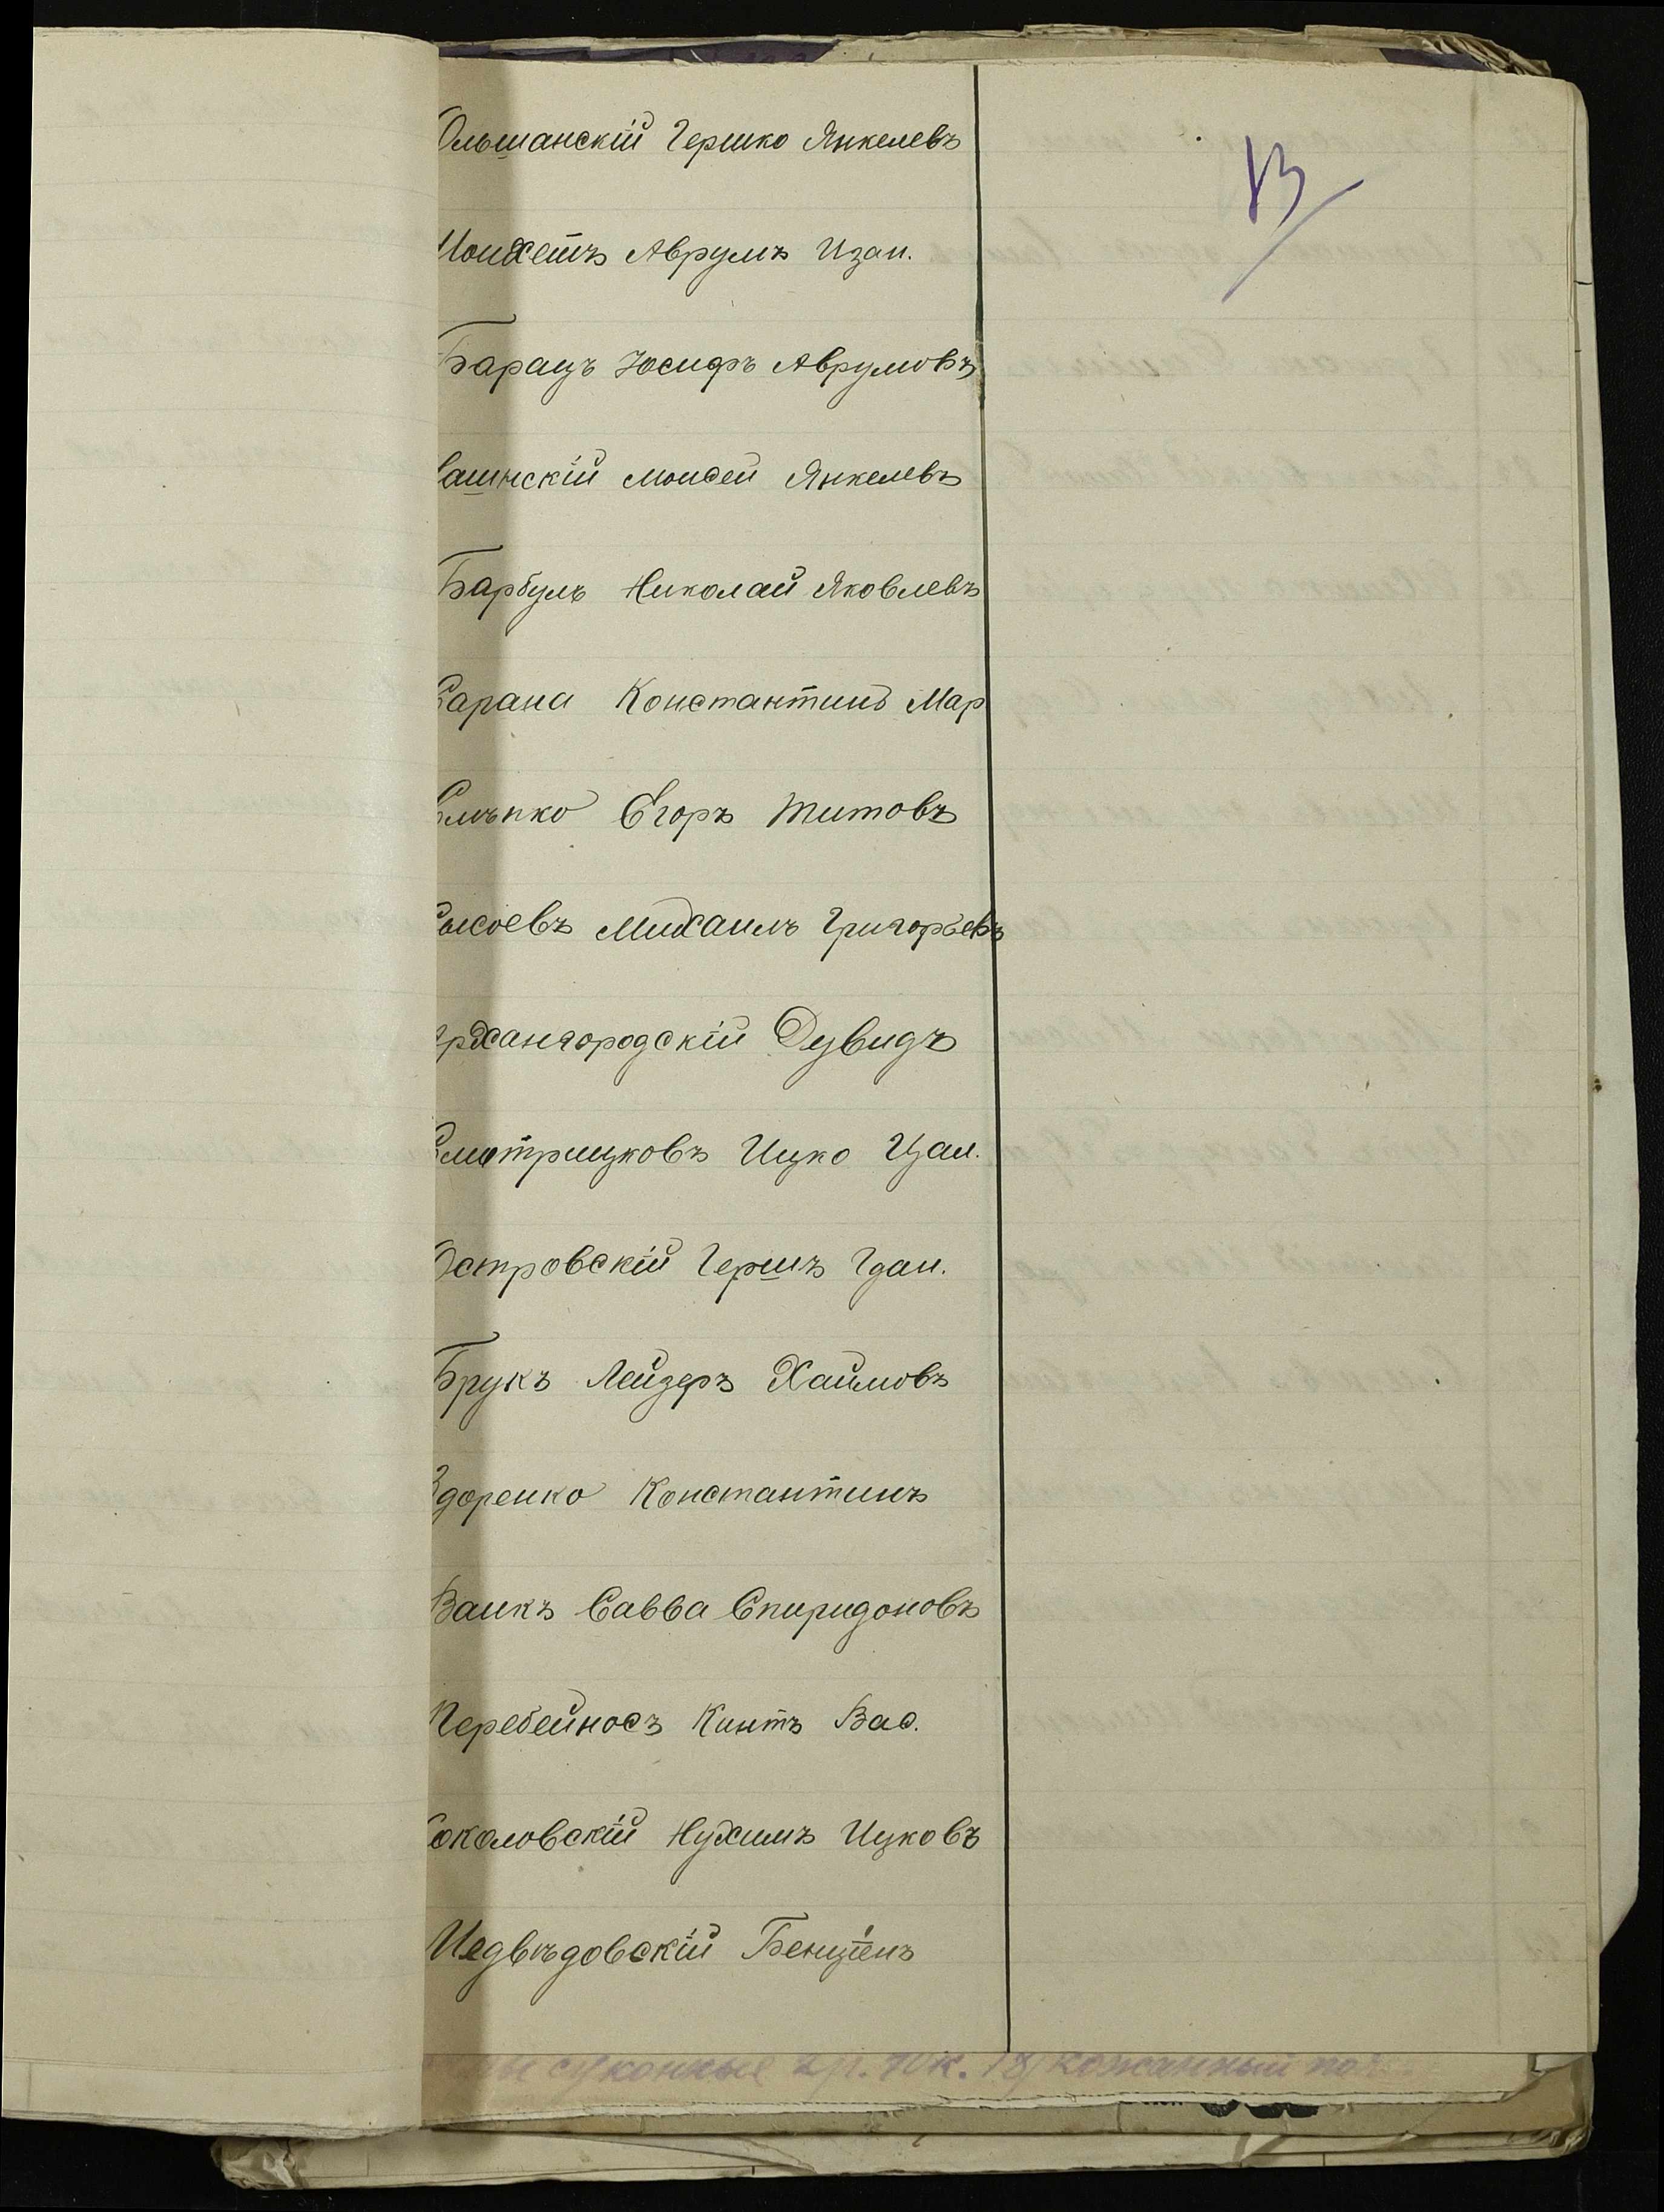 Ольшанскій Гершко Янкелевъ
13
Аврумъ Изаи.
Барацъ Іосифъ Аврумовъ
ашинскій Моисей Янкелевъ
Барбулъ Николай Яковлевъ
Сарана Константинъ Мар
Слѣпко Егоръ Титовъ
Сысоевъ Михаилъ Григорьевъ
рхангородскій Дувидъ
Смотрицковъ Ицко Цал.
Островскій Гершъ Гдал.
Брукъ Лейзеръ Хаимовъ
Здоренко Константинъ
Ваикъ Савва Спиридоновъ
Перебейносъ Кинтъ Вас.
Соколовскій Нухимъ Ицковъ
Медвѣдовскій Бенціенъ
суконные 2 р. 70 к. 18) кожанный